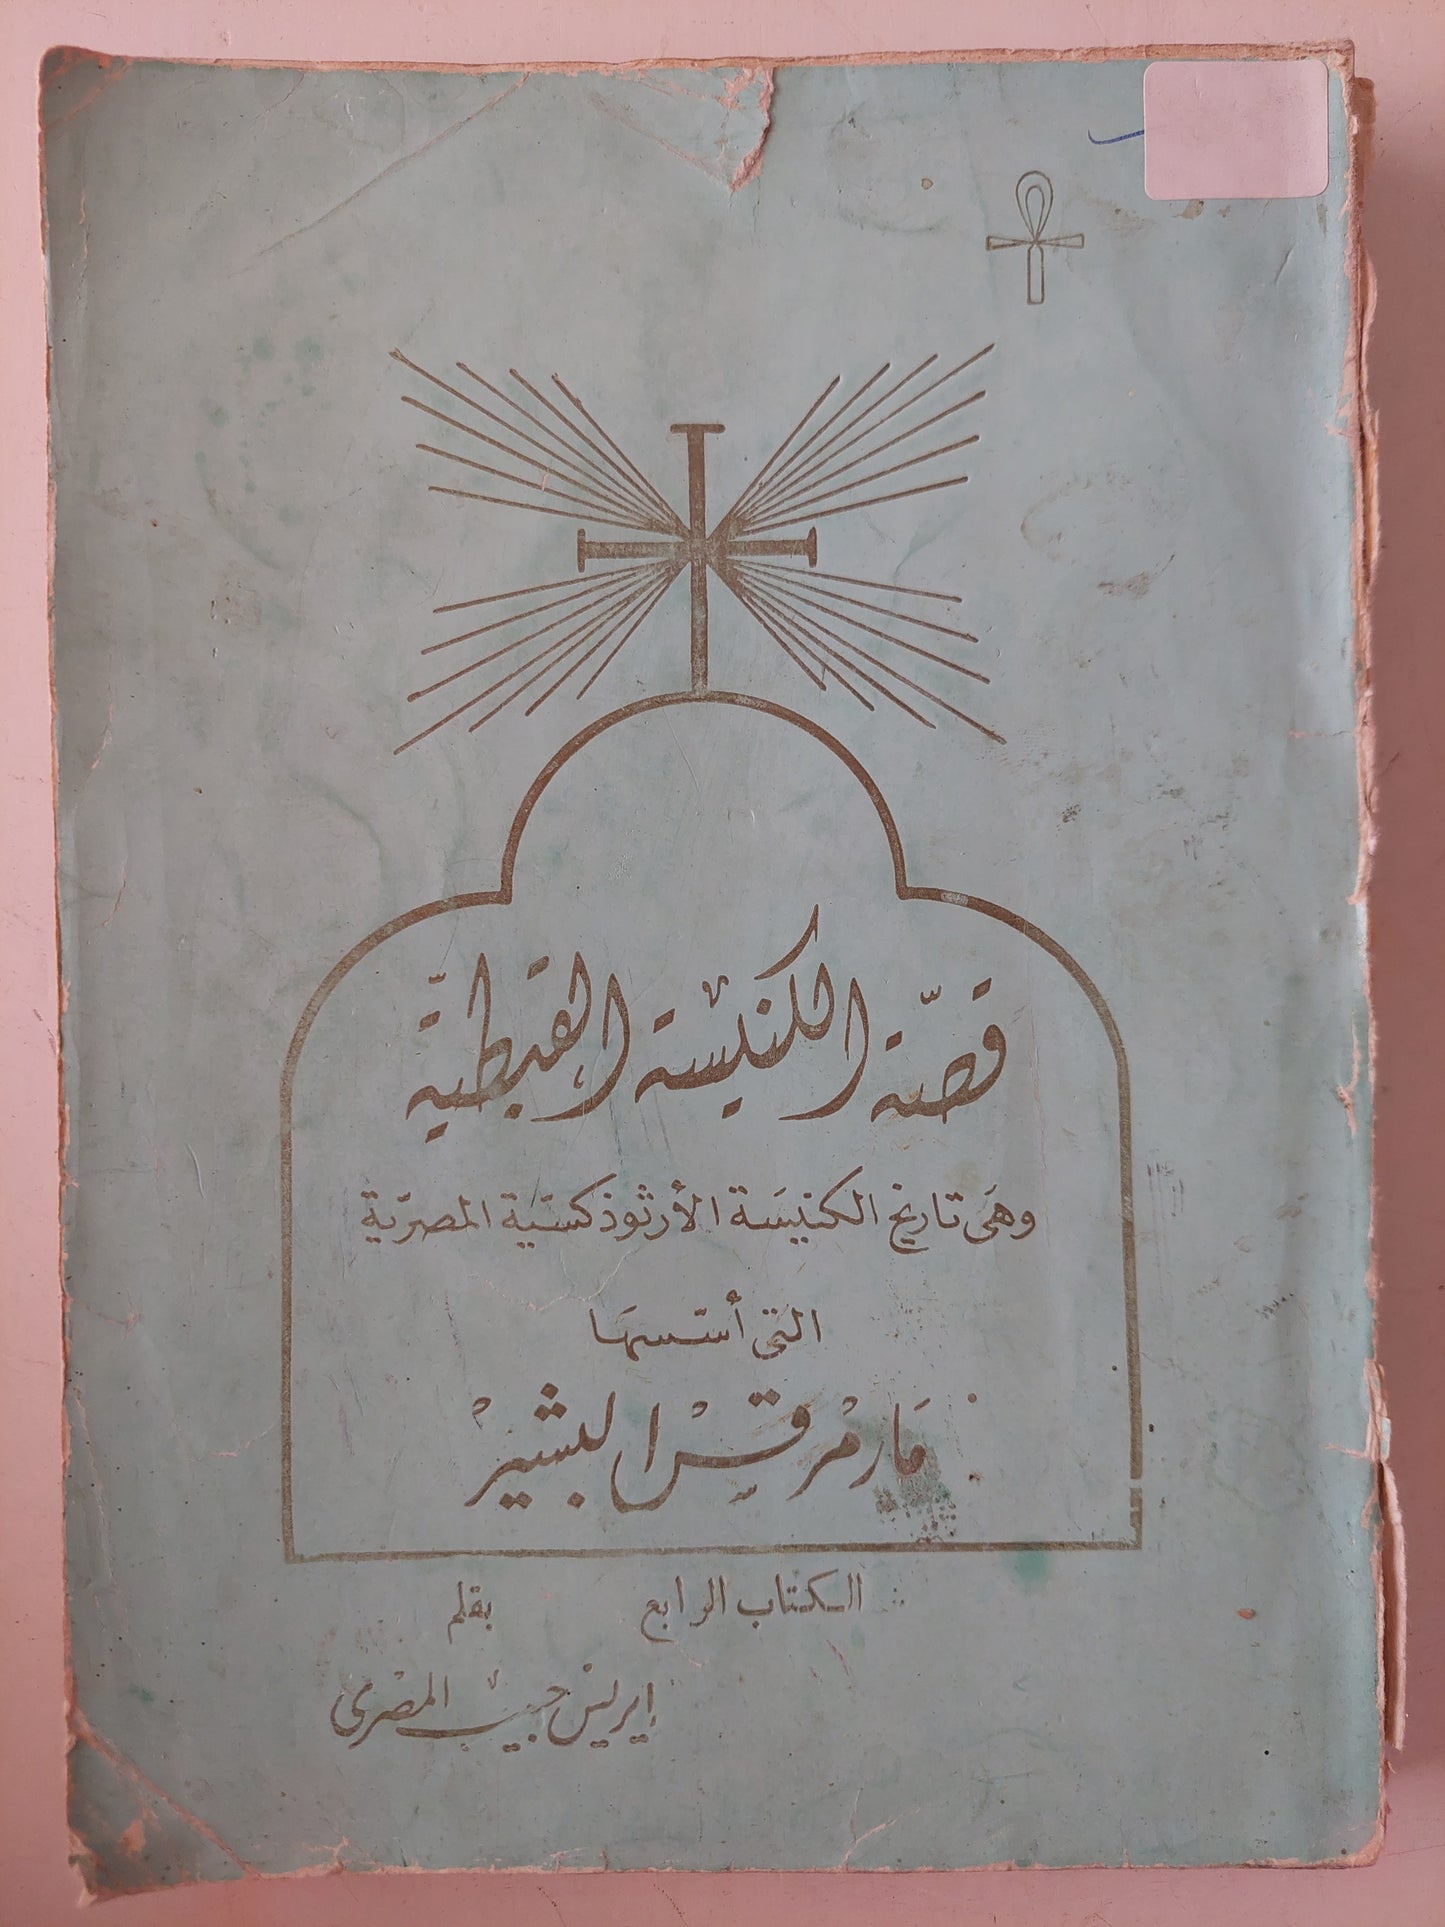 قصّة الكنيسة القبطيّة
وهَى تاريخ الكنيسَة الأرثوذكسيّة المصريّة
التى أسّسهَا
مَارمرْقسْ البشيْر
الكتاب الرابع بقلم
إيريسْ حبيبْ المصْرى